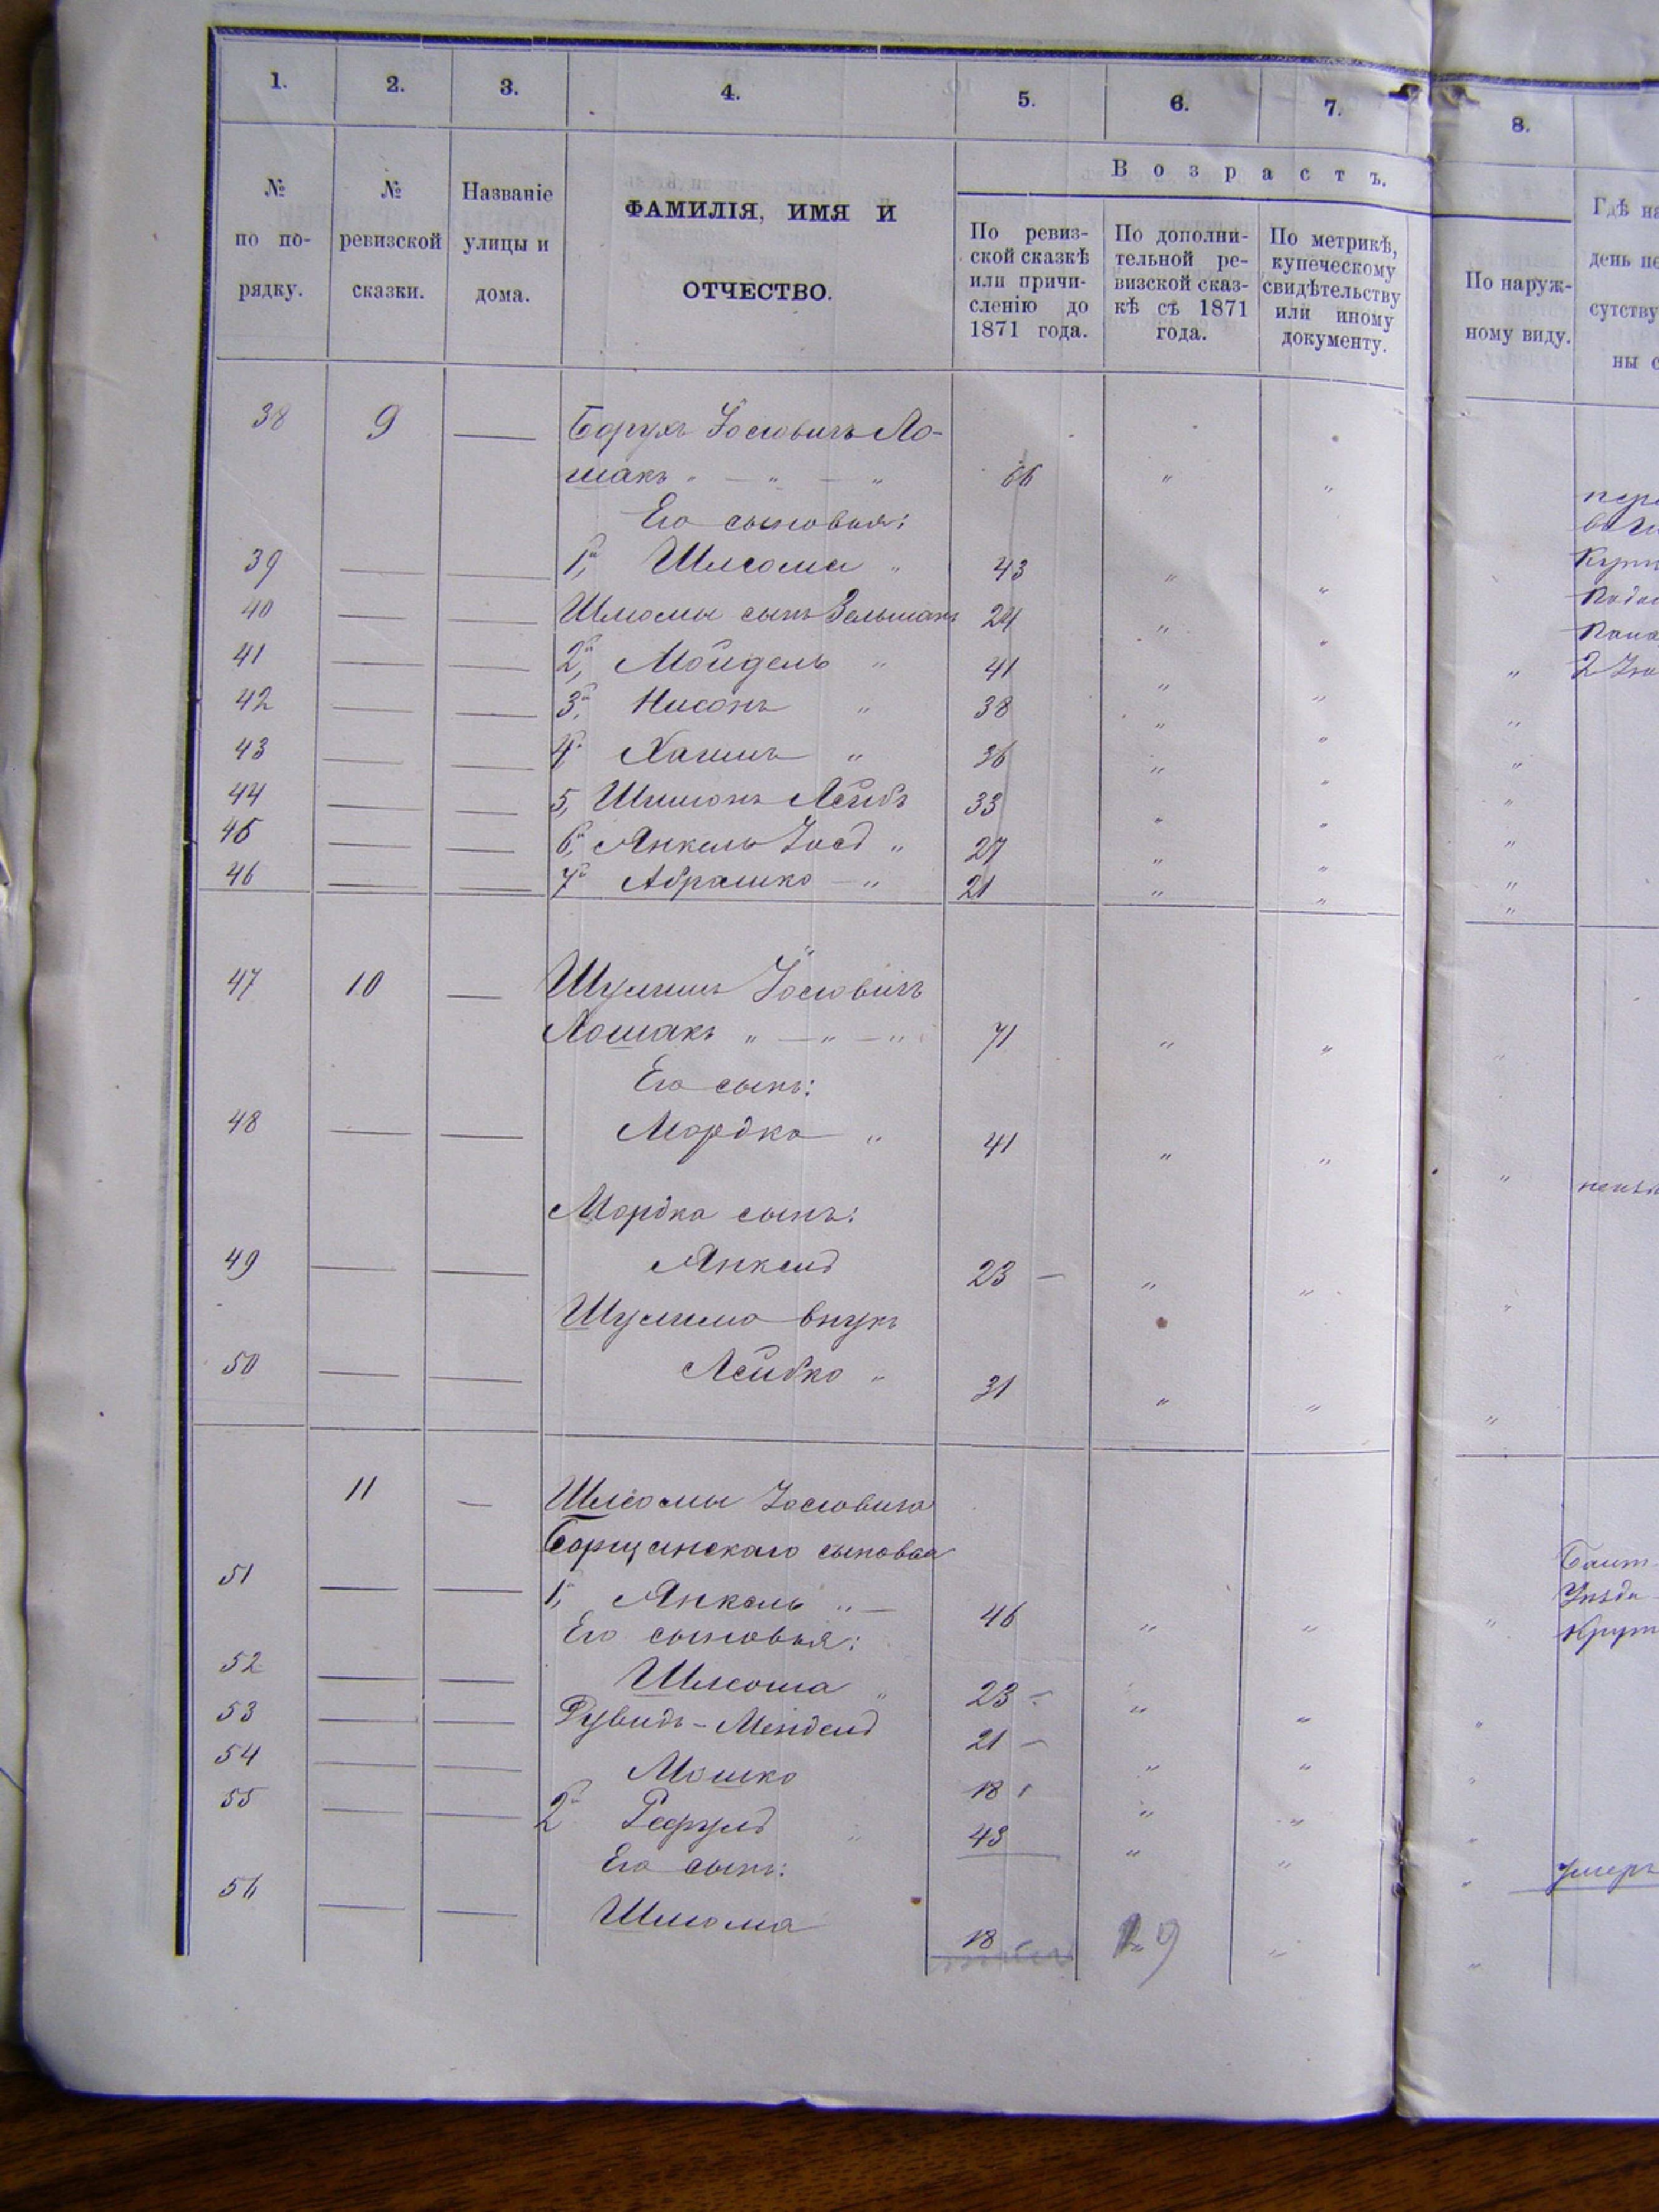 1. 2. 3. 4. 5. 6. 7. 8.
В о з р а с т ъ.
№ по по- рядку.
№ ревизской сказки.
Названіе улицы и дома.
ФАМИЛІЯ, ИМЯ И ОТЧЕСТВО.
По ревиз- ской сказкѣ или причи- сленію до 1871 года.
По дополни- тельной ре- визской сказ- кѣ съ 1871 года.
По метрикѣ, купеческому свидѣтельству или иному документу.
По наруж- ному виду.
Гдѣ на
день пе
сутству
ны с
38 9 — Борухъ Іосіовичъ Ло-
шакъ " — " — " 66 " "
Его сыновья:
39 — — 1й, Шліома " 43 " "
40 — — Шліомы сынъ Зельманъ 24 " "
41 — — 2й, Мойдель " 41 " " "
42 — — 3й, Нисонъ " 38 " " "
43 — — 4й Хаимъ " 36 " " "
44 — — 5, Шимонъ Лейбъ 33 " " "
45 — — 6й, Янкель Іосѣ " 27 " " "
46 — — 7й Абрашко — " 21 " " "
47 10 — Шулимъ Іосіовичъ
Лошакъ " — " — " 71 " "
Его сынъ:
48 — — Мордко " 41 " " "
Мордка сынъ:
49 — — Янкель 23 — " " "
Шулима внукъ
50 — — Лейбко " 31 " " "
11 — Шліомы Іосіовича
Борщанскаго сыновья
51 — — 1й, Янкель " — 46 " " "
Его сыновья:
52 — — Шліома " 23 — " " "
53 — — Рувинъ - Мендель 21 — " " "
54 — — Мошко 18 " " "
55 — — 2й Рефулъ " 43 " " " Умеръ
Его сынъ:
56 — — Шліома 18 9 " "